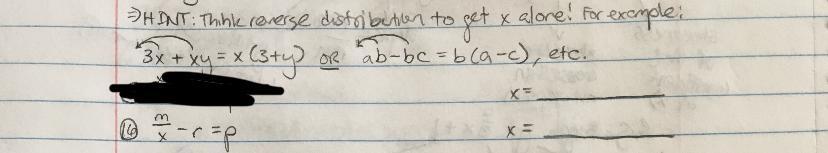 ⇒HINT: Think reverse distribution to get x alone! For example:
3x + xy = x(3+y) OR ab-bc = b(a-c), etc.
x = ________
⑯ m/x - r = p x = ________